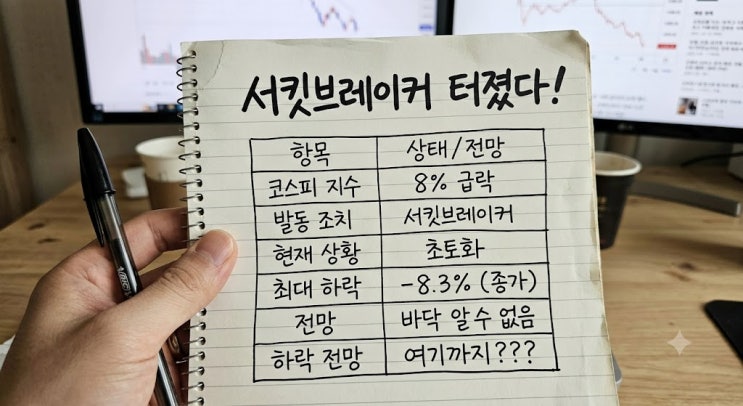 서킷브레이커 터졌다!
항목 상태/전망
코스피 지수 8% 급락
발동 조치 서킷브레이커
현재 상황 초토화
최대 하락 -8.3% (종가)
전망 바닥 알 수 없음
하락 전망 여기까지???